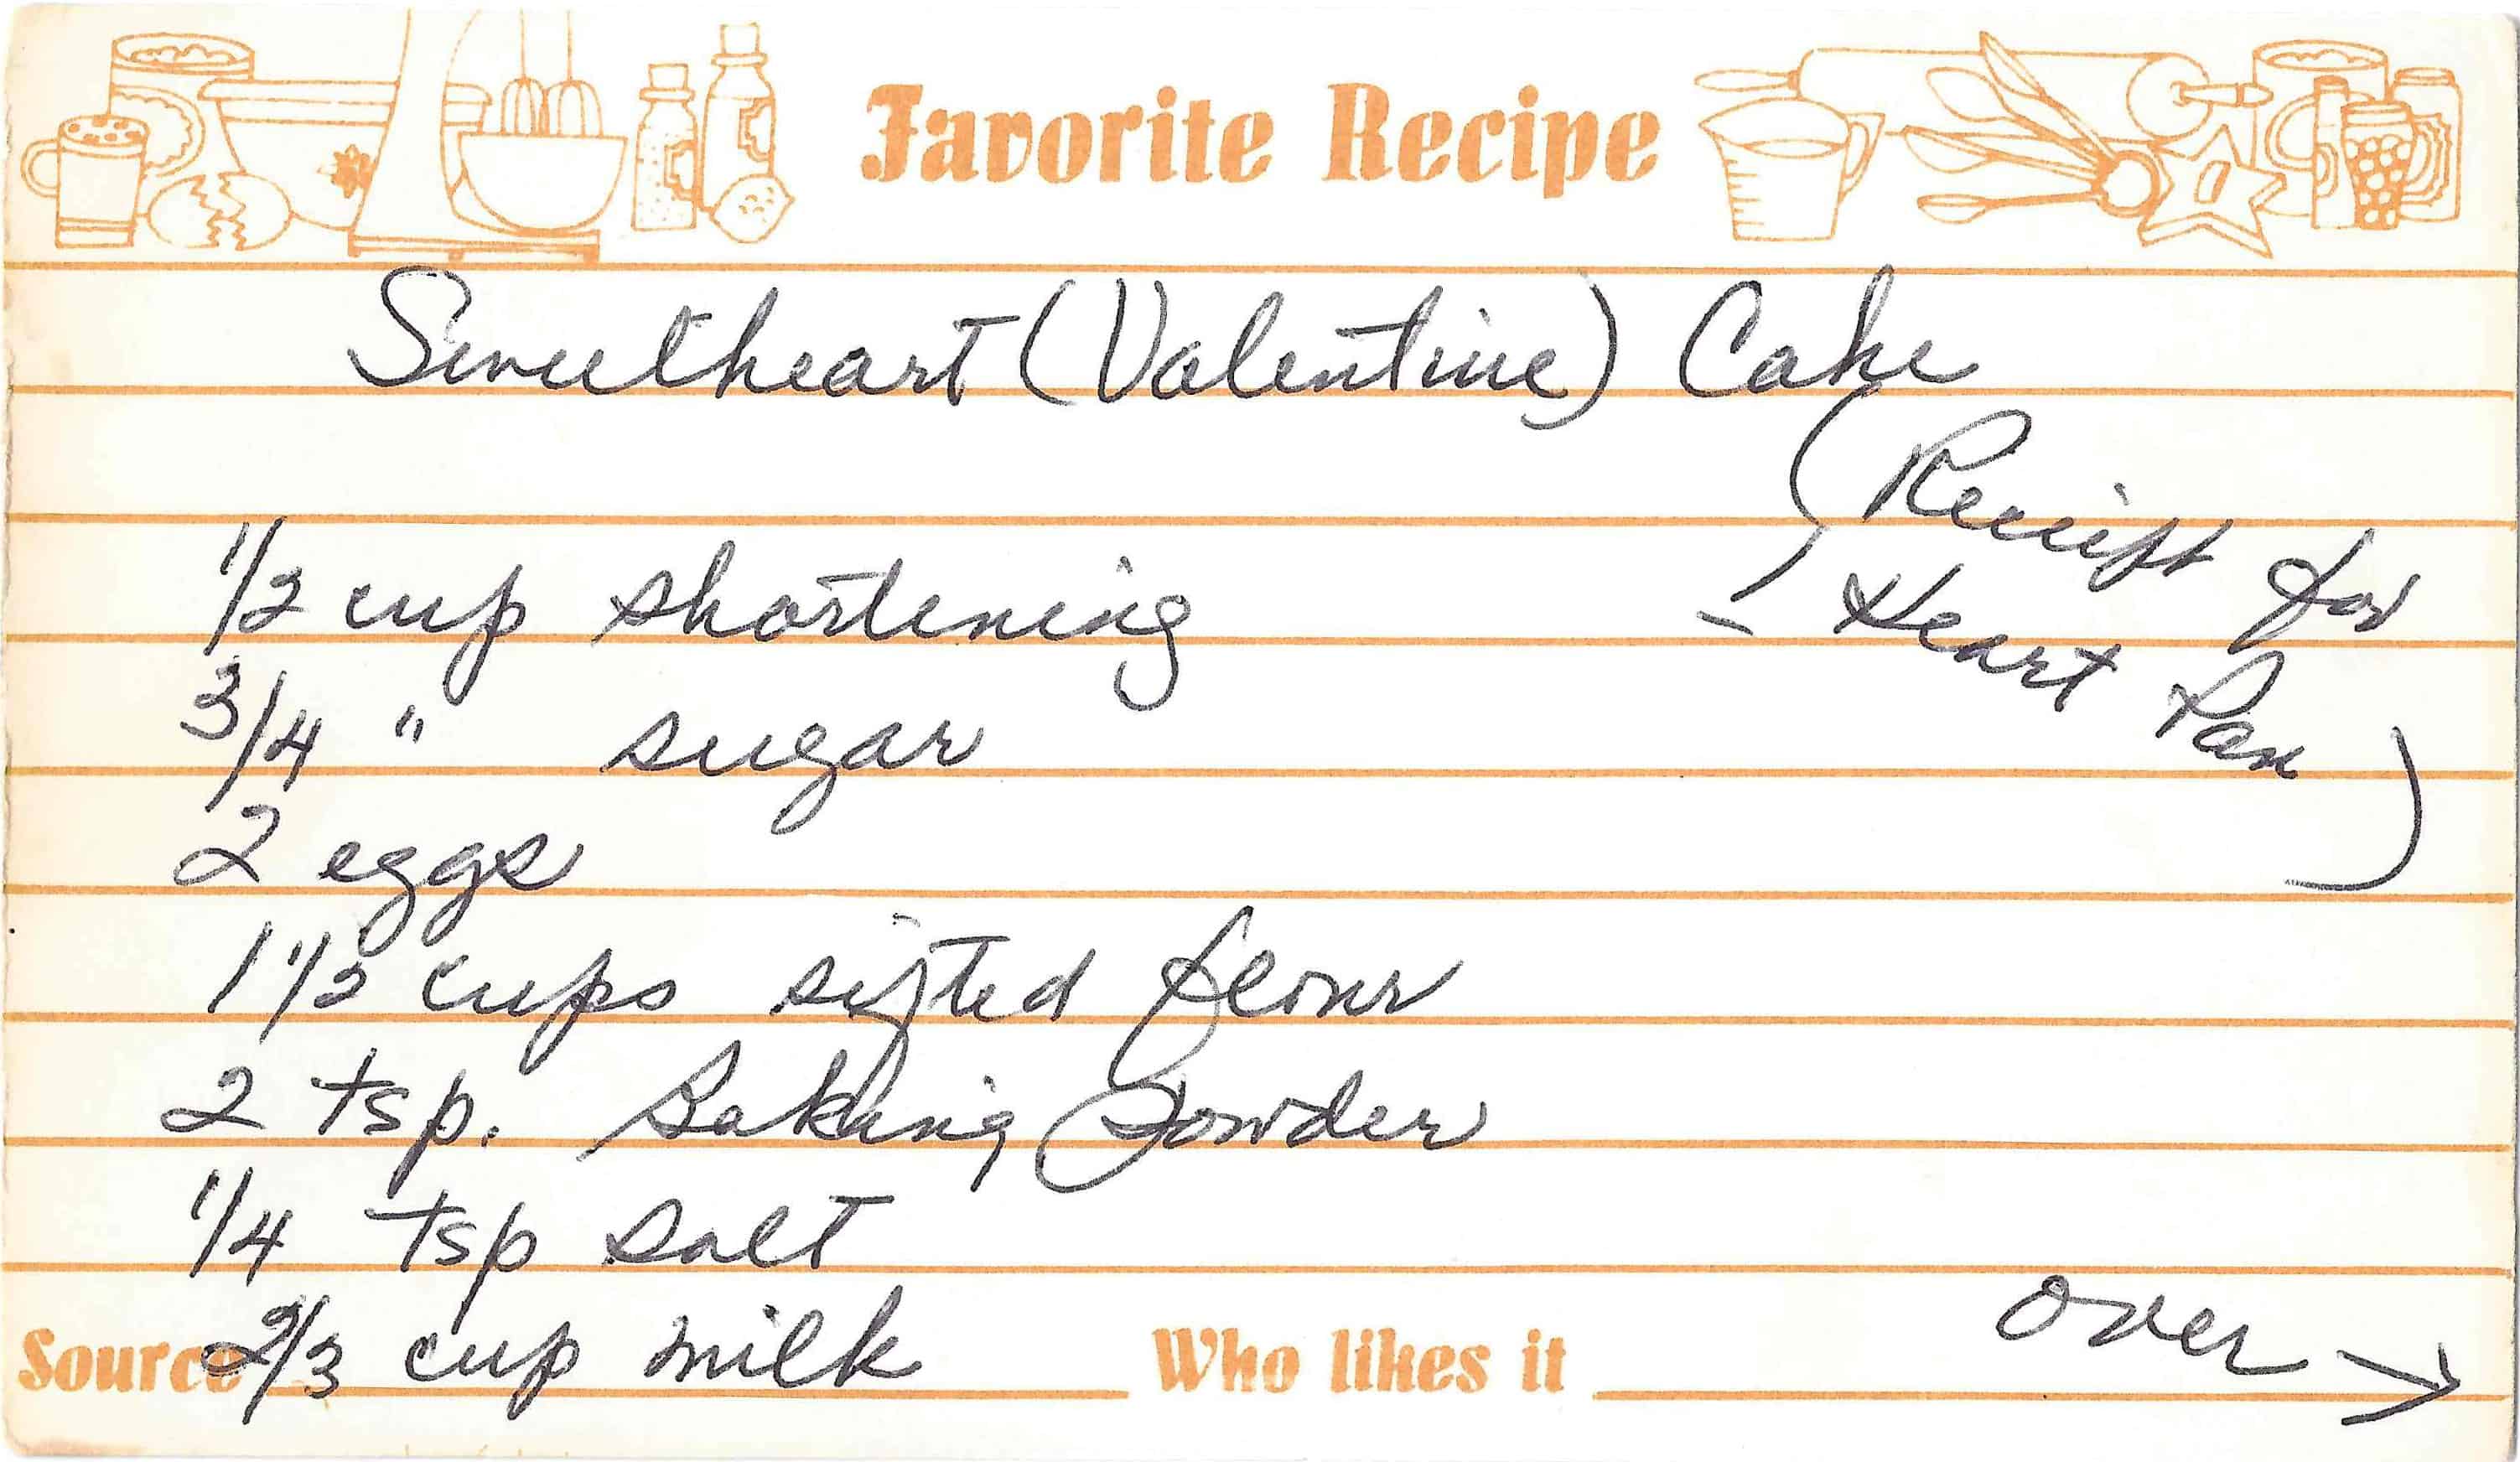 Favorite Recipe
Sweetheart (Valentine) Cake
(Receipt for
Heart Pan)
1/2 cup shortening
3/4 " sugar
2 eggs
1 1/2 cups sifted flour
2 tsp. Baking Powder
1/4 tsp salt
2/3 cup milk
over →
Source
Who likes it